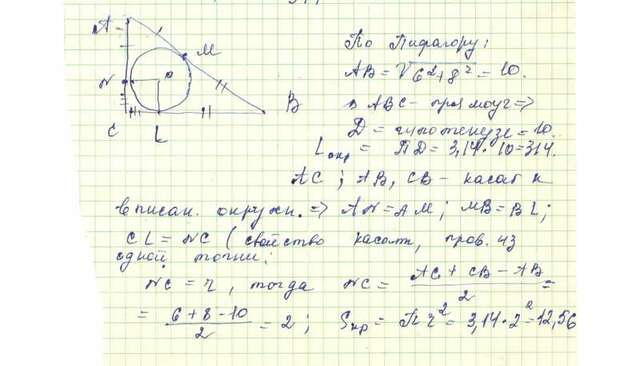 A
M
N
O
B
C
L
По Пифагору:
AB = √6²+8² = 10.
ABC - прямоуг ⇒
D = гипотенузе = 10.
L окр = ПD = 3,14 · 10 = 31,4.
AC; AB, CB - касат к
вписан. окружн. ⇒ AN = AM; MB = BL;
CL = NC (свойство касат, пров. из
одной точки;
NC = r, тогда NC = AC + CB - AB / 2 =
= 6 + 8 - 10 / 2 = 2; Sкр = Пr² = 3,14 · 2² = 12,56